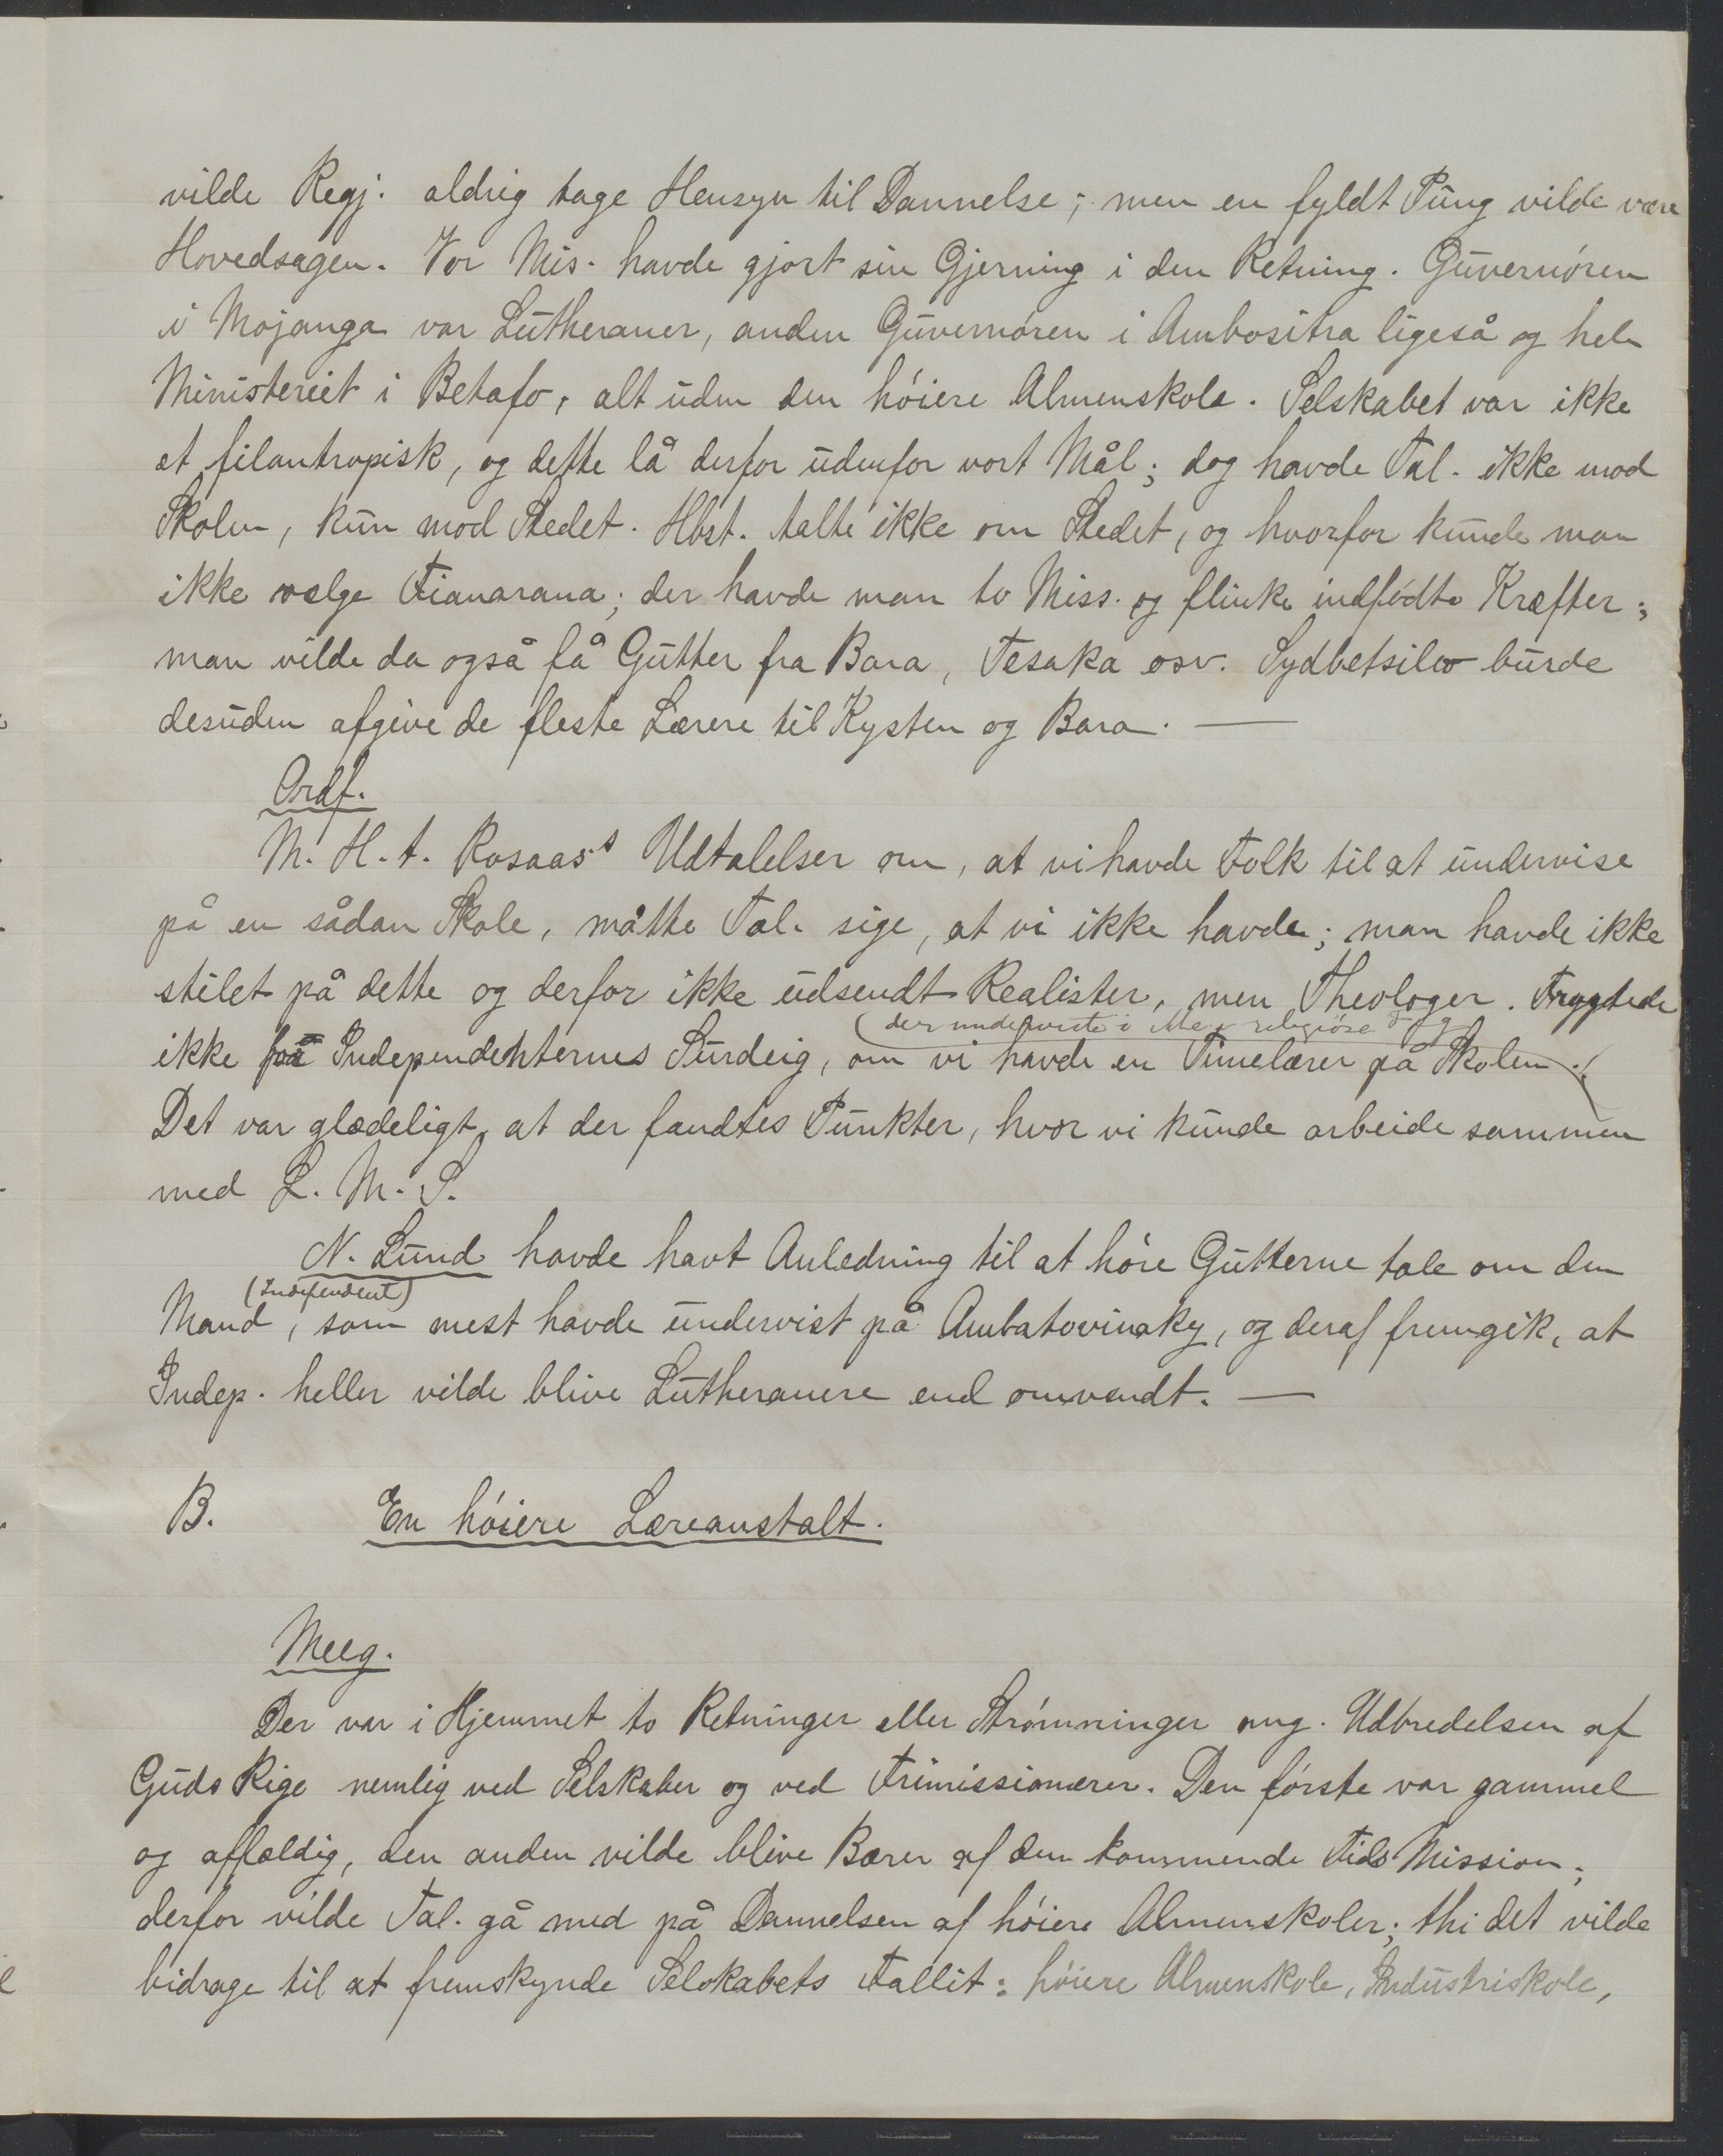 vilde Regj. aldrig tage Hensyn til Dannelse; men en fyldt Pung vilde være
Hovedsagen. Vor Mis. havde gjort sin Gjerning i den Retning. Guvernøren
i Mojanga var Lutheraner, anden Guvernøren i Ambositra ligeså og hele
Ministeriet i Betafo, alt uden den høiere Almenskole. Selskabet var ikke
et filantropisk, og dette lå derfor udenfor vort Mål; dog havde Tal. ikke mod
Skolen, kun mod Stedet. Hbst. talte ikke om Stedet, og hvorfor kunde man
ikke vælge Fianarana; der havde man to Miss. og flinke indfødte Kræfter;
man vilde da også få Gutter fra Bara, Tesaka osv. Sydbetsileo burde
desuden afgive de fleste Lærere til Kysten og Bara. —
Ordf.
M. H. t. Rosaas's Udtalelser om, at vi havde Folk til at undervise
på en sådan Skole, måtte Tal. sige, at vi ikke havde; man havde ikke
stilet på dette og derfor ikke udsendt Realister, men Theologer. Frygtede
(der underviste i religiøse Fag
ikke Independenternes Surdeig, om vi havde en Timelærer på Skolen.
Det var glædeligt, at der fandtes Punkter, hvor vi kunde arbeide sammen
med L. M. S.
N. Lund havde havt Anledning til at høre Gutterne tale om den
(Independent)
Mand, som mest havde undervist på Ambatovinaky, og deraf fremgik, at
Indep. heller vilde blive Lutheranere end omvendt. —
B. En høiere Læreanstalt.
Meeg.
Der var i Hjemmet to Retninger eller Strømninger ang. Udbredelsen af
Guds Rige nemlig ved Selskaber og ved Frimissionærer. Den første var gammel
og affældig, den anden vilde blive Bærer af den kommende Tids Mission;
derfor vilde Tal. gå med på Dannelsen af høiere Almenskoler; thi det vilde
bidrage til at fremskynde Selskabets Fallit: høiere Almenskole, Industriskole,